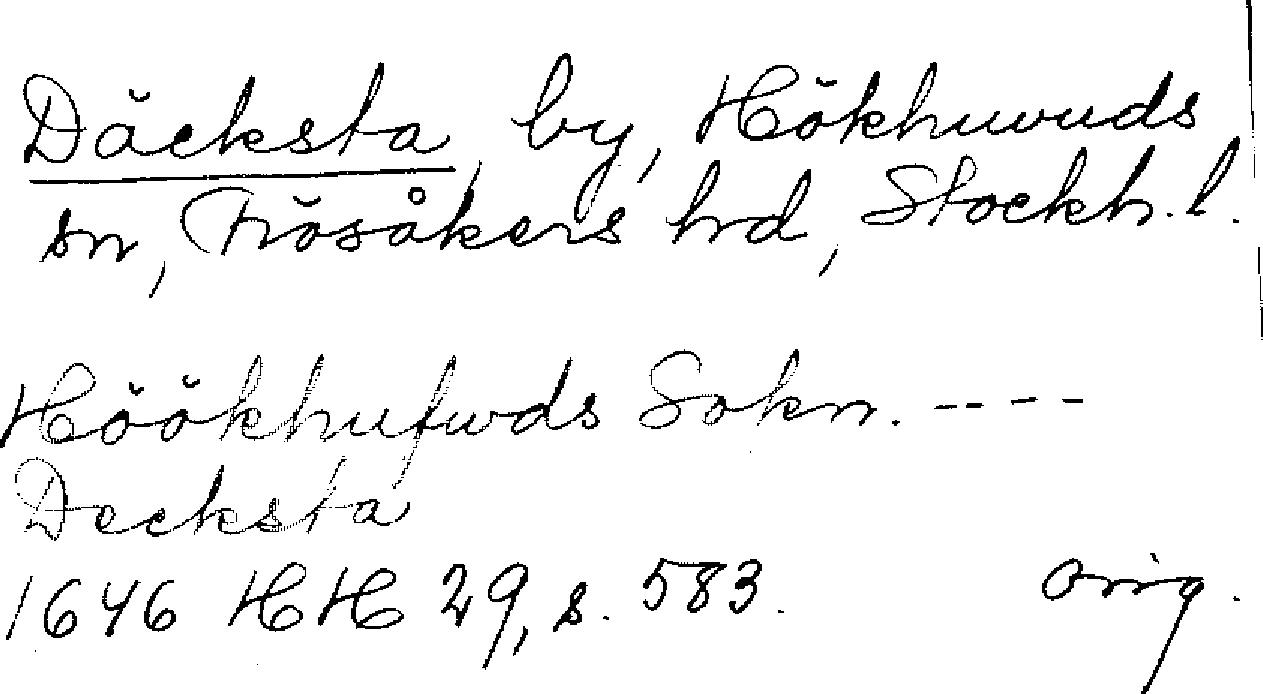 Däcksta, by, Hökhuvuds
sn, Frösåkers hrd, Stockh. l.
Höökhufwds Sokn. ----
Decksta
1646 HH 29, s. 583. Orig.